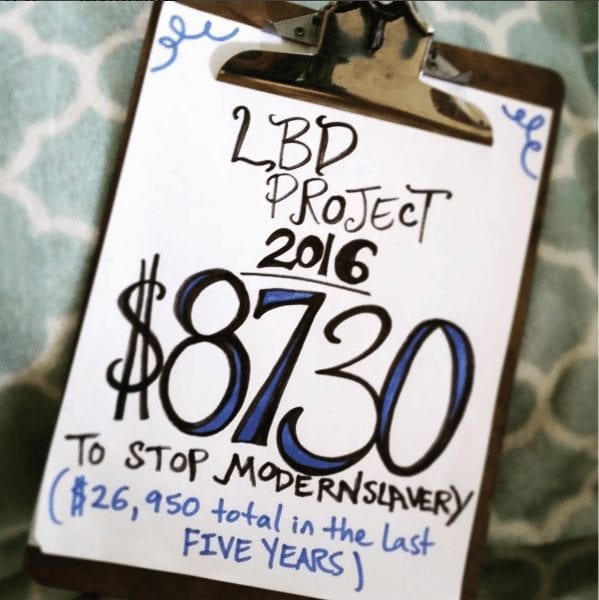 LBD
PROJECT
2016
$8730
TO STOP MODERN SLAVERY
($26,950 total in the last
FIVE YEARS)